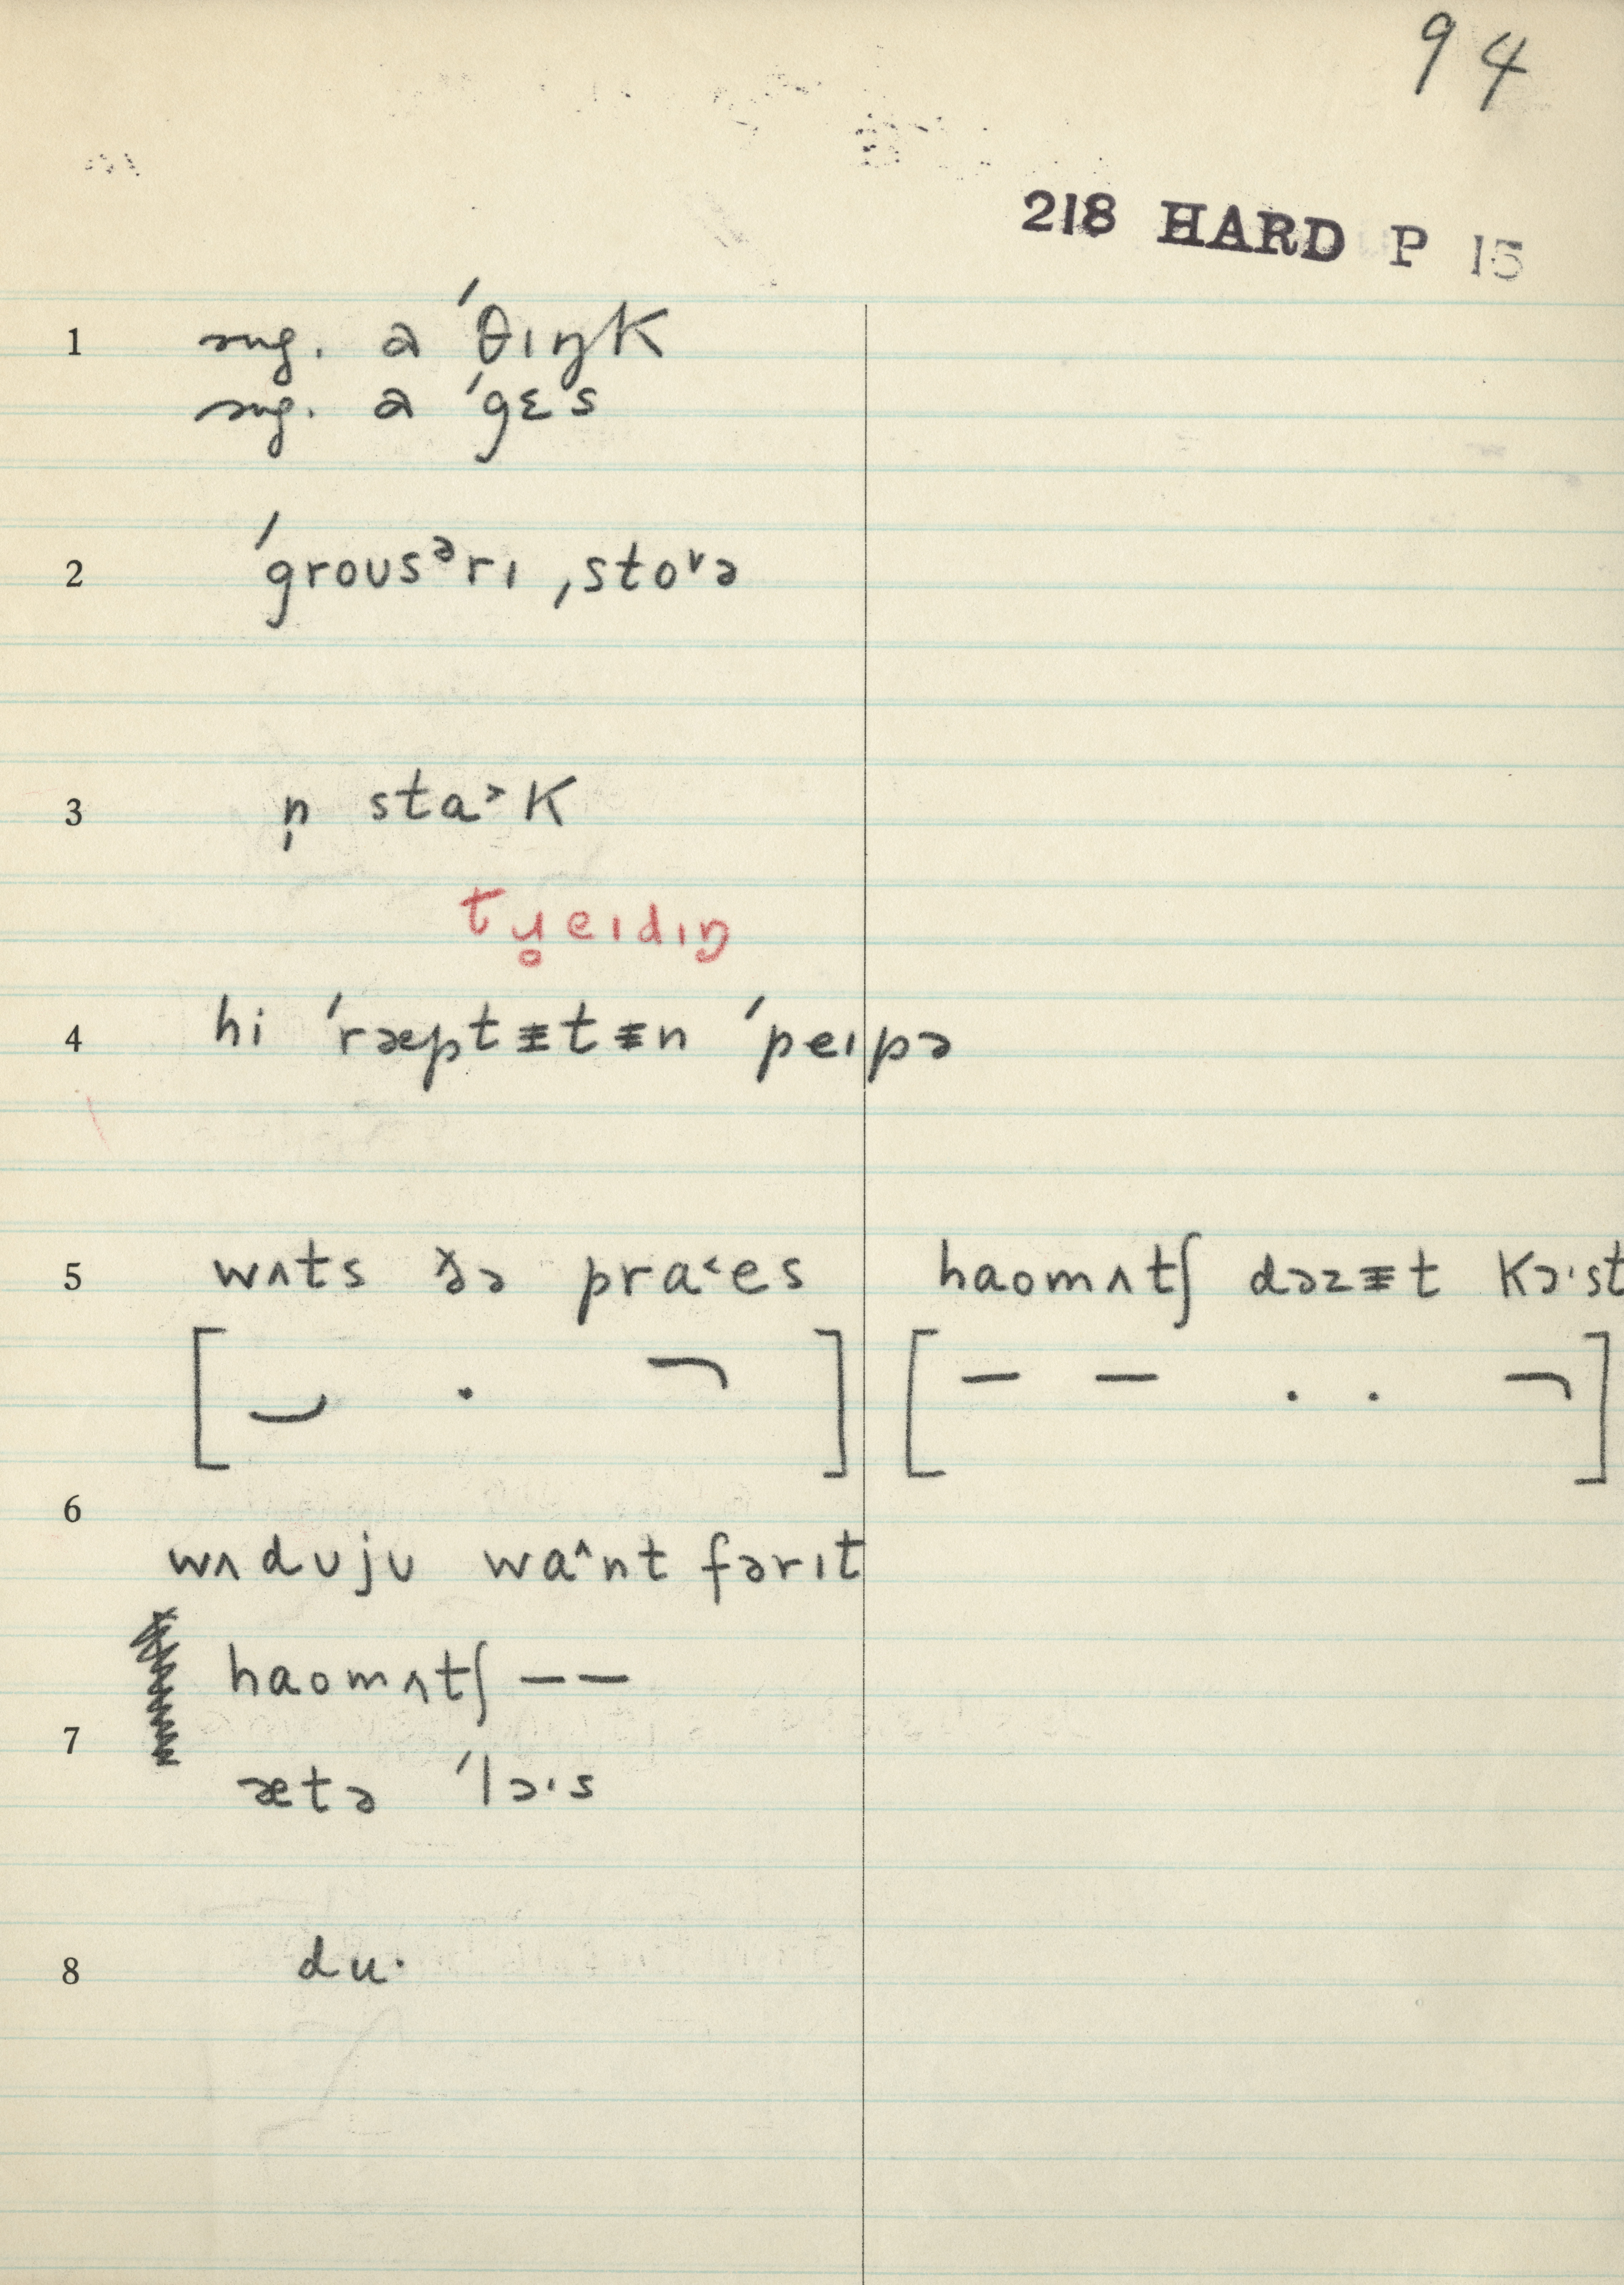 94
218 HARD P 15
1 sug. a ˈθɪŋk
sug. a ˈgɛs
2 ˈgroʊsᵊrɪ ˌstoᵛə
3 n̩ sta˃k
tu̥eɪdɪŋ
4 hi ˈræptᵻtᵻn ˈpeɪpə
5 wʌts ðə pra˂es haomʌtʃ dəzᵻt kɔ·st
6
wʌdʊjʊ wa^nt fərɪt
haomʌtʃ — —
7
ætə ˈlɔ·s
8 du·